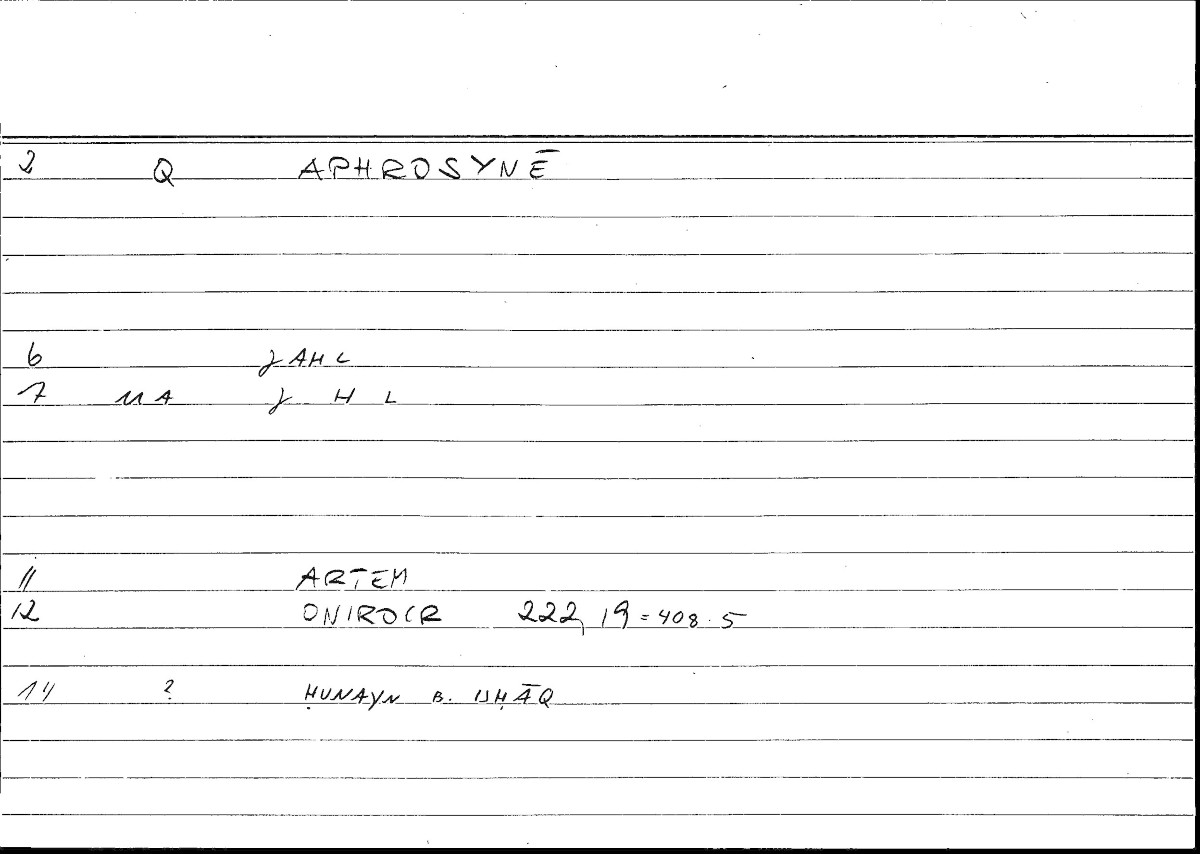 2 Q APHROSYNĒ
6 ǧAHL
7 11A ǧ H L
11 ARTEM
12 ONIROCR 222, 19 = 408.5
14 ? ḤUNAYN B. ISḤĀQ